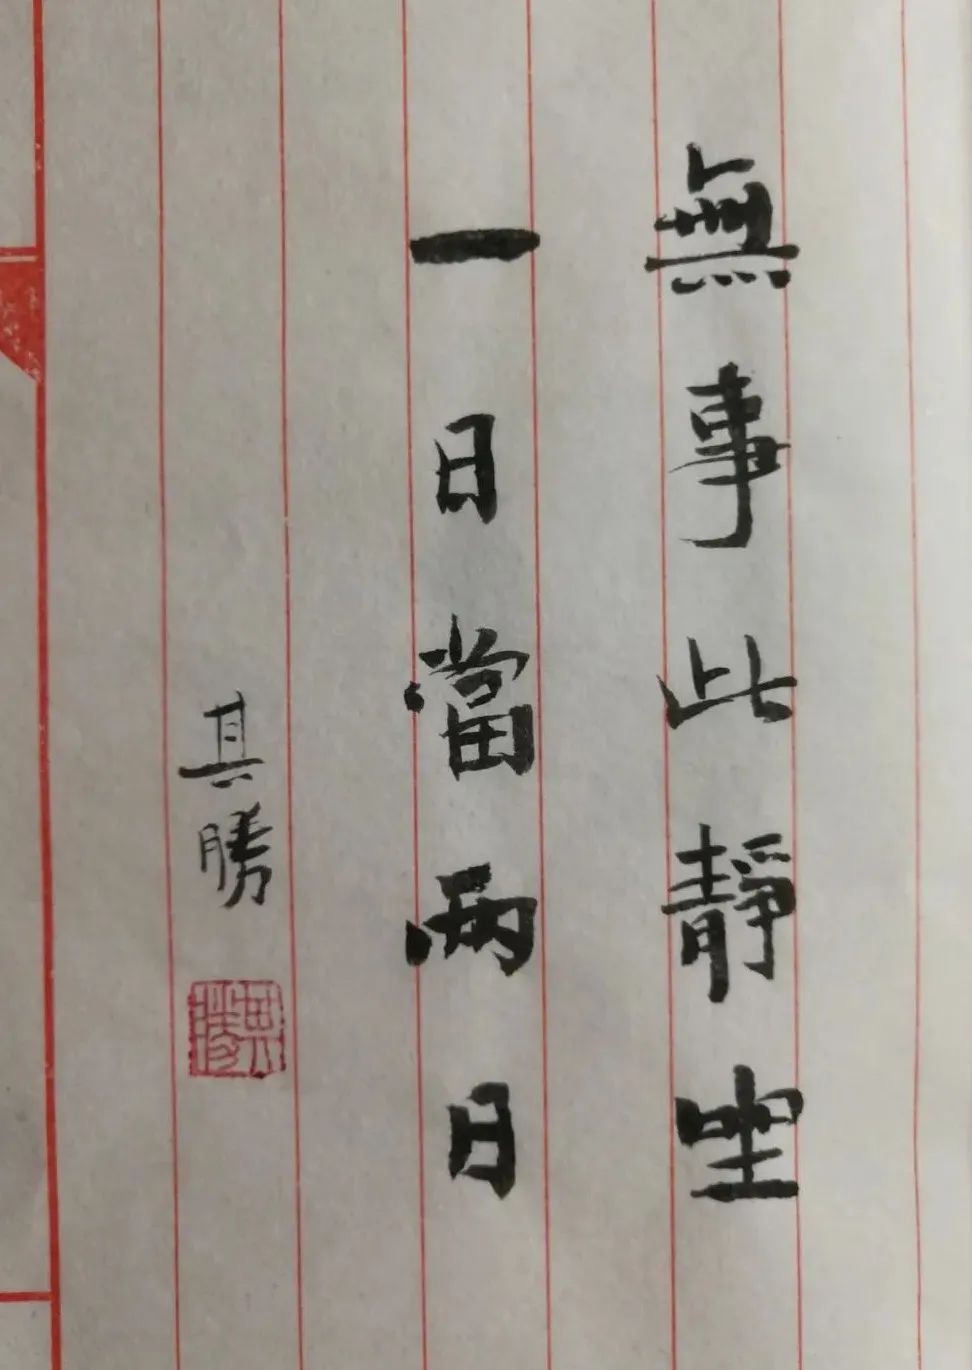 無事此靜坐
一日當兩日
其勝